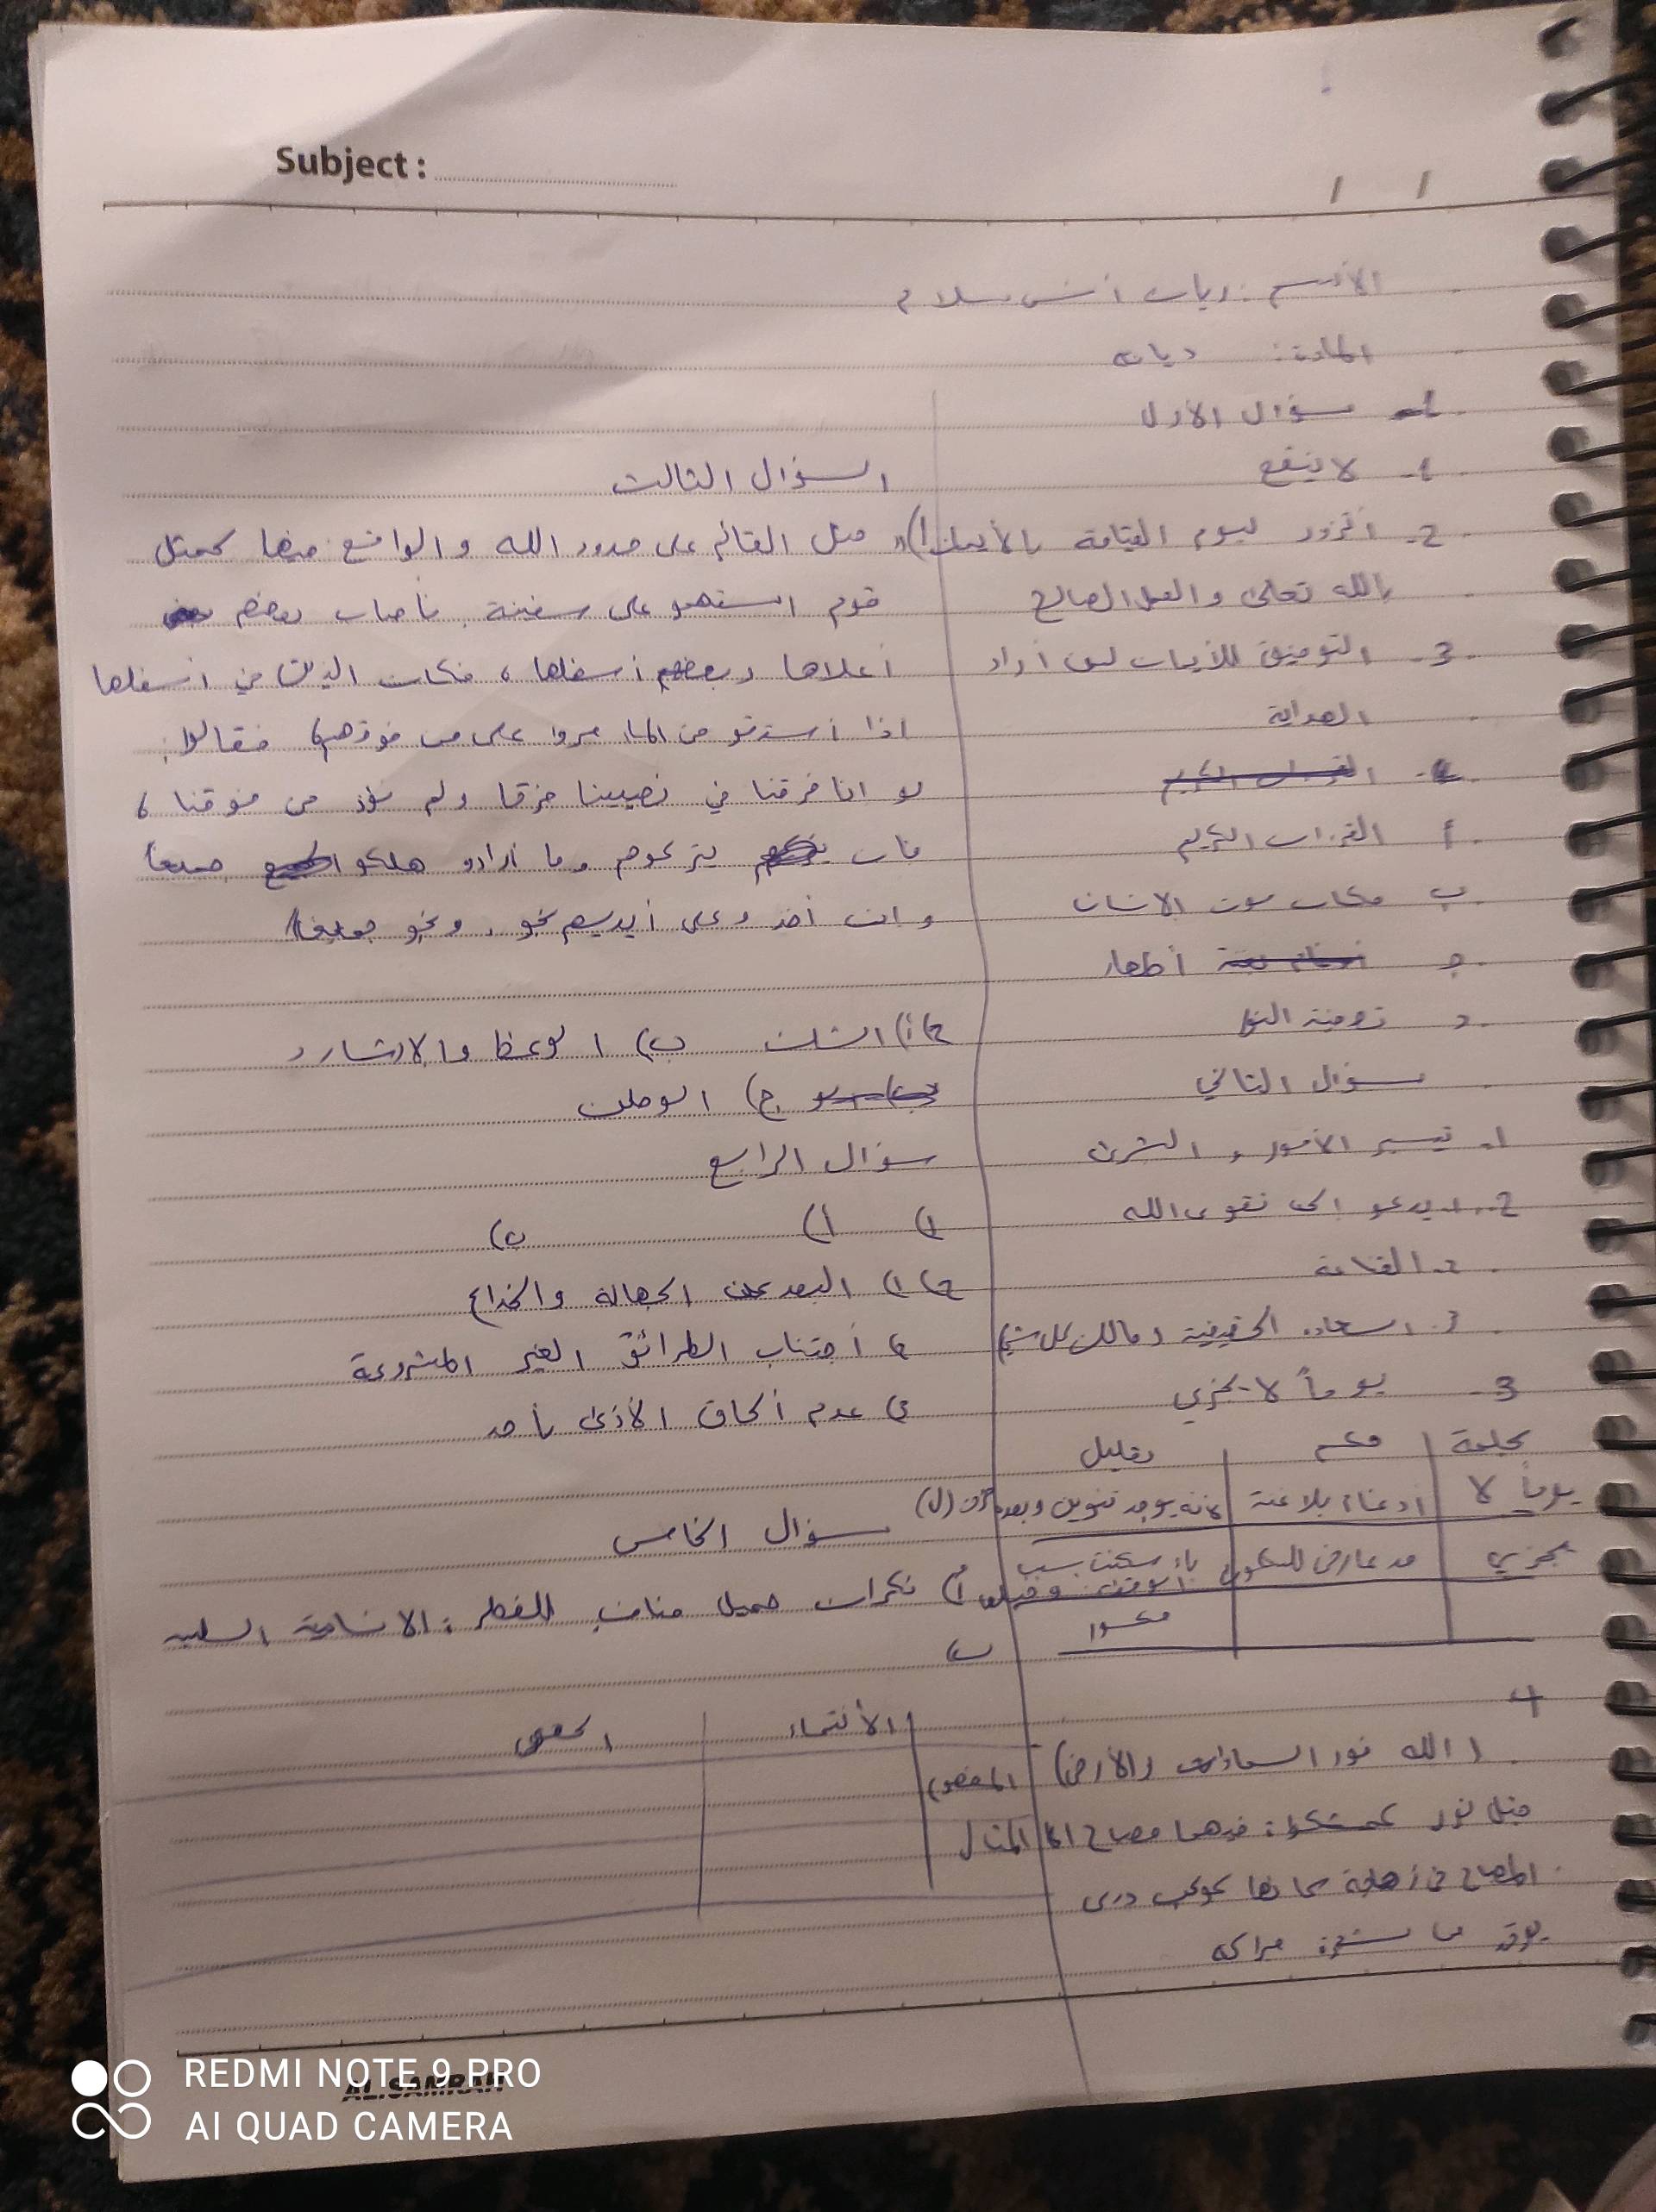 Subject :
/ /
المادة: ديانه
1- سؤال الأول
1- لا ينفع
2- التزود ليوم القيامة بالأيمان
بالله تعالى والعمل الصالح
3- التوفيق للأيمان لمن أراد
الهداية
أ القرآن الكريم
ب مكان موت الانسان
ج أظهار
د
سؤال الثاني
1. تيسير الأمور و الرزق
2. 1. يدعو إلى تقوى الله
2. القناعة
3. السعادة الحقيقية
3- يوماً لا يجزي
كلمة حكم تعليل
يوماً لا أدغام بلا غنة لأنه يوجد تنوين وبعده حرف (ل)
يجزي مد عارض للسكون ياء سكنت بسبب
الوقف وقبلها
مكسور
4
(الله نور السماوات والأرض)
مثل نوره كمشكاة فيها مصباح
المصباح في زجاجة كانها كوكب دري
يوقد من شجرة مباركه
السؤال الثالث
1) "مثل القائم على حدود الله والواقع فيها كمثل
قوم استهمو على سفينة، فأصاب بعضهم
أعلاها وبعضهم أسفلها، فكان الذين في أسفلها
اذا أستقو من الماء مروا على من فوقهم، فقالوا:
لو انا خرقنا في نصيبنا خرقا ولم نؤذ من فوقنا،
فان يتركوهم وما أرادو هلكو جميعا
وان أخذو على أيديهم نجو، ونجو جميعا"
2) أ) الثلث ب) الوعظ والارشاد
ج) الوطن
سؤال الرابع
1) أ) ب)
2) 1) البعد عن الجهالة والخداع
2) أجتناب الطرائق الغير المشروعة
3) عدم ألحاق الأذى بأحد
سؤال الخامس
أ) نكران جميل مناف للفطرة الانسانية السليمة
ب)
الأنتماء
المفهوم
المثال
AL.SAMRAH
REDMI NOTE 9 PRO
AI QUAD CAMERA